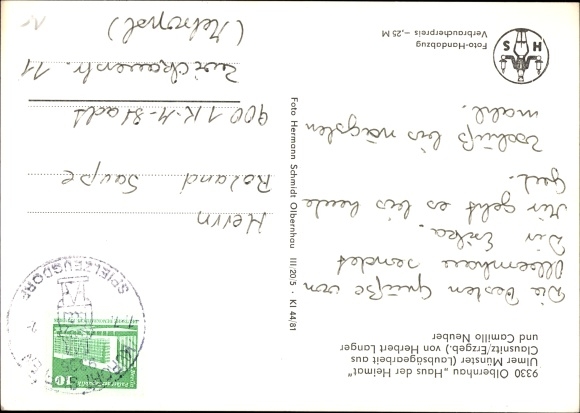 9330 Olbernhau „Haus der Heimat"
Ulmer Münster (Laubsägearbeit aus
Clausnitz/Erzgeb.) von Herbert Langer
und Camillo Neuber
Die besten Grüße von
sendet
Dir Erika.
Mir geht es bis heute
Gut.
Tschüß bis nägsten
mahl.
H S
Foto-Handabzug
Verbraucherpreis –,25 M
Foto Hermann Schmidt Olbernhau III 20/5 · Kl 44/81
10
SPIELZEUGDORF
Herrn
Roland Saupe
9001 K-M-Stadt
Zwickauerstr. 11
(Metropol)